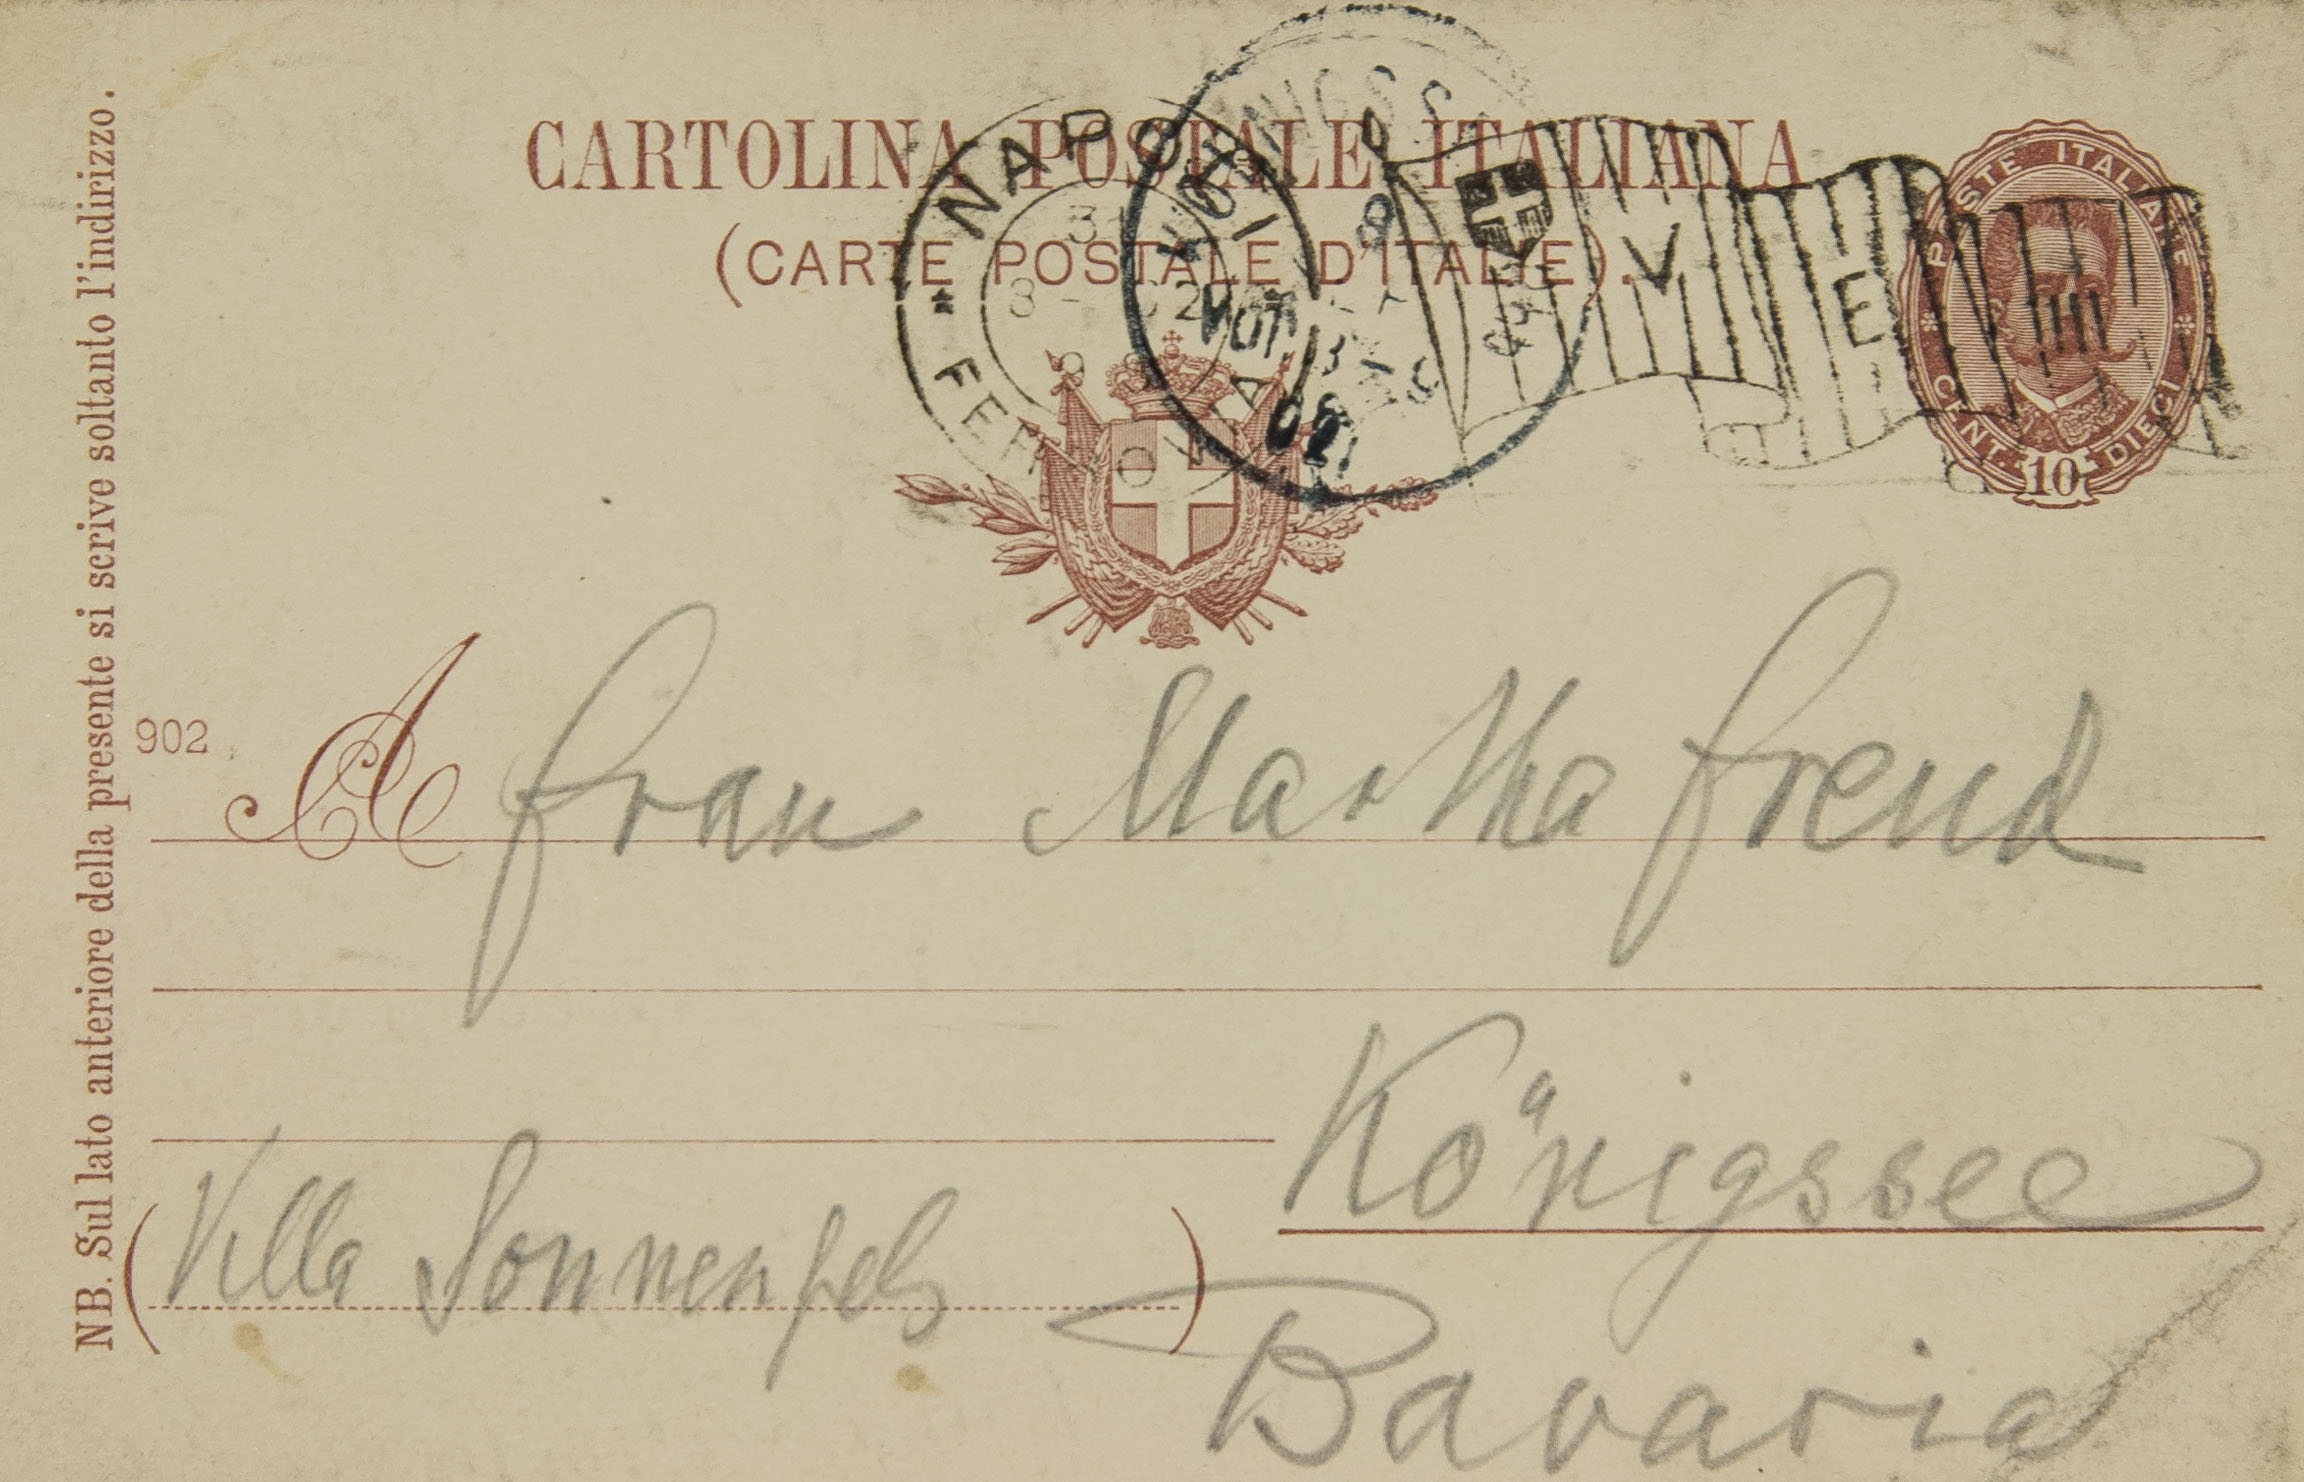 CARTOLINA POSTALE ITALIANA
(CARTE POSTALE D'ITALIE).
NAPOLI
* FERROVIA
POSTE ITALIANE
CENT. 10 DIECI
V E III
NB. Sul lato anteriore della presente si scrive soltanto l'indirizzo.
902
A Frau Martha Freud
Königssee
(Villa Sonnenfels)
Bavaria